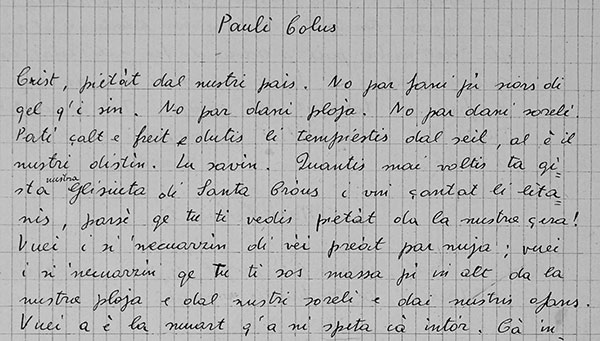 Pauli Colus
Crist, pietàt dal nustri paìs. No par fani pì siors di
qel q'i sin. No par dani ploja. No par dani soreli.
Patì çalt e freit e dutis li tempiestis dal seil, al è il
nustri distin. Lu savìn. Quantis mai voltis ta qi=
sta nustra Glisiuta di Santa Cròus i vin çantat li lita=
nis, parsè qe tu ti vedis pietàt da la nustra çera!
Vuei i si 'necuarzìn di vèi preàt par nuja; vuei
i si 'necuarzìn qe tu ti sos massa pì in alt da la
nustra ploja e dal nustri soreli e dai nustris afans.
Vuei a è la muart q'a ni speta cà intòr. Cà in=